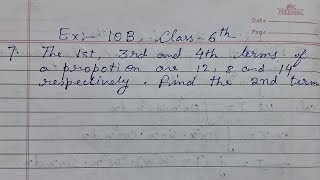 Date
Page
Ex:- 10B, Class-6th
7. The 1st, 3rd and 4th terms of
a propotion are 12, 8 and 14
respectively. Find the 2nd term